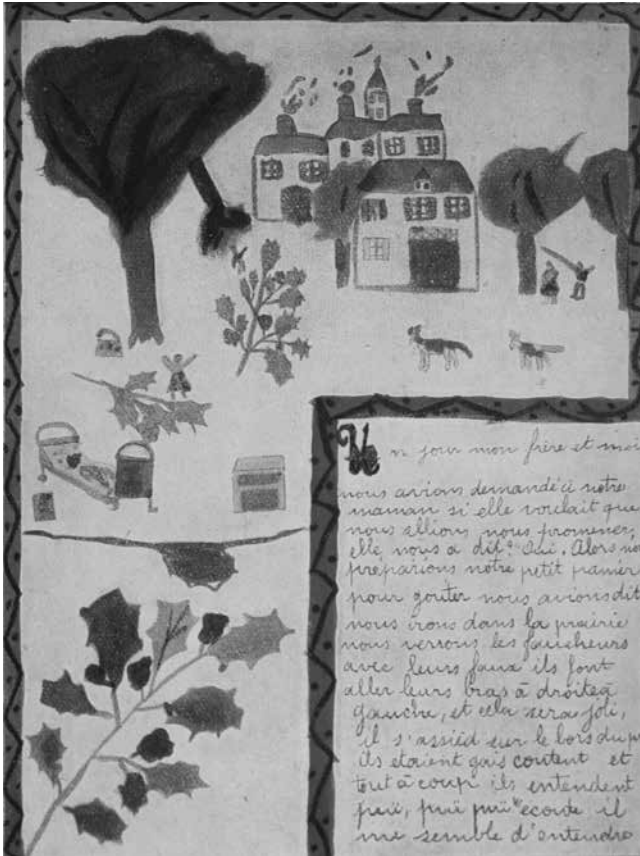 Un jour mon frère et moi
nous avions demandé à notre
maman si elle voulait que
nous allions nous promener,
elle nous a dit: Oui. Alors no
préparions notre petit panier
pour goûter nous avions dit
nous irons dans la prairie
nous verrons les faucheurs
avec leurs faux ils font
aller leurs bras à droite à
gauche, et cela sera joli,
il s'assied sur le bord du p
ils étaient gais content et
tout à coup ils entendent
puï, puï puï" ecoute il
me semble d'entendre